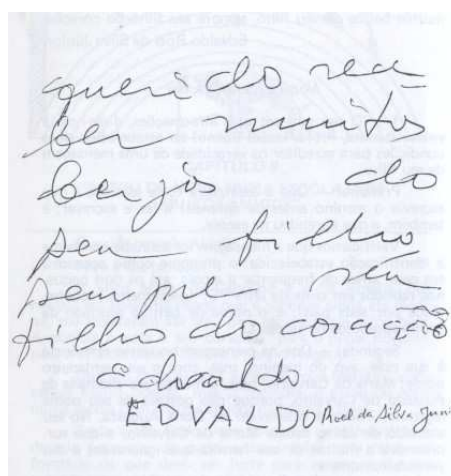 querido rece
ber muitos
beijos do
seu filho
sempre seu
filho do coração
Edvaldo
EDVALDO Roel da Silva Juni